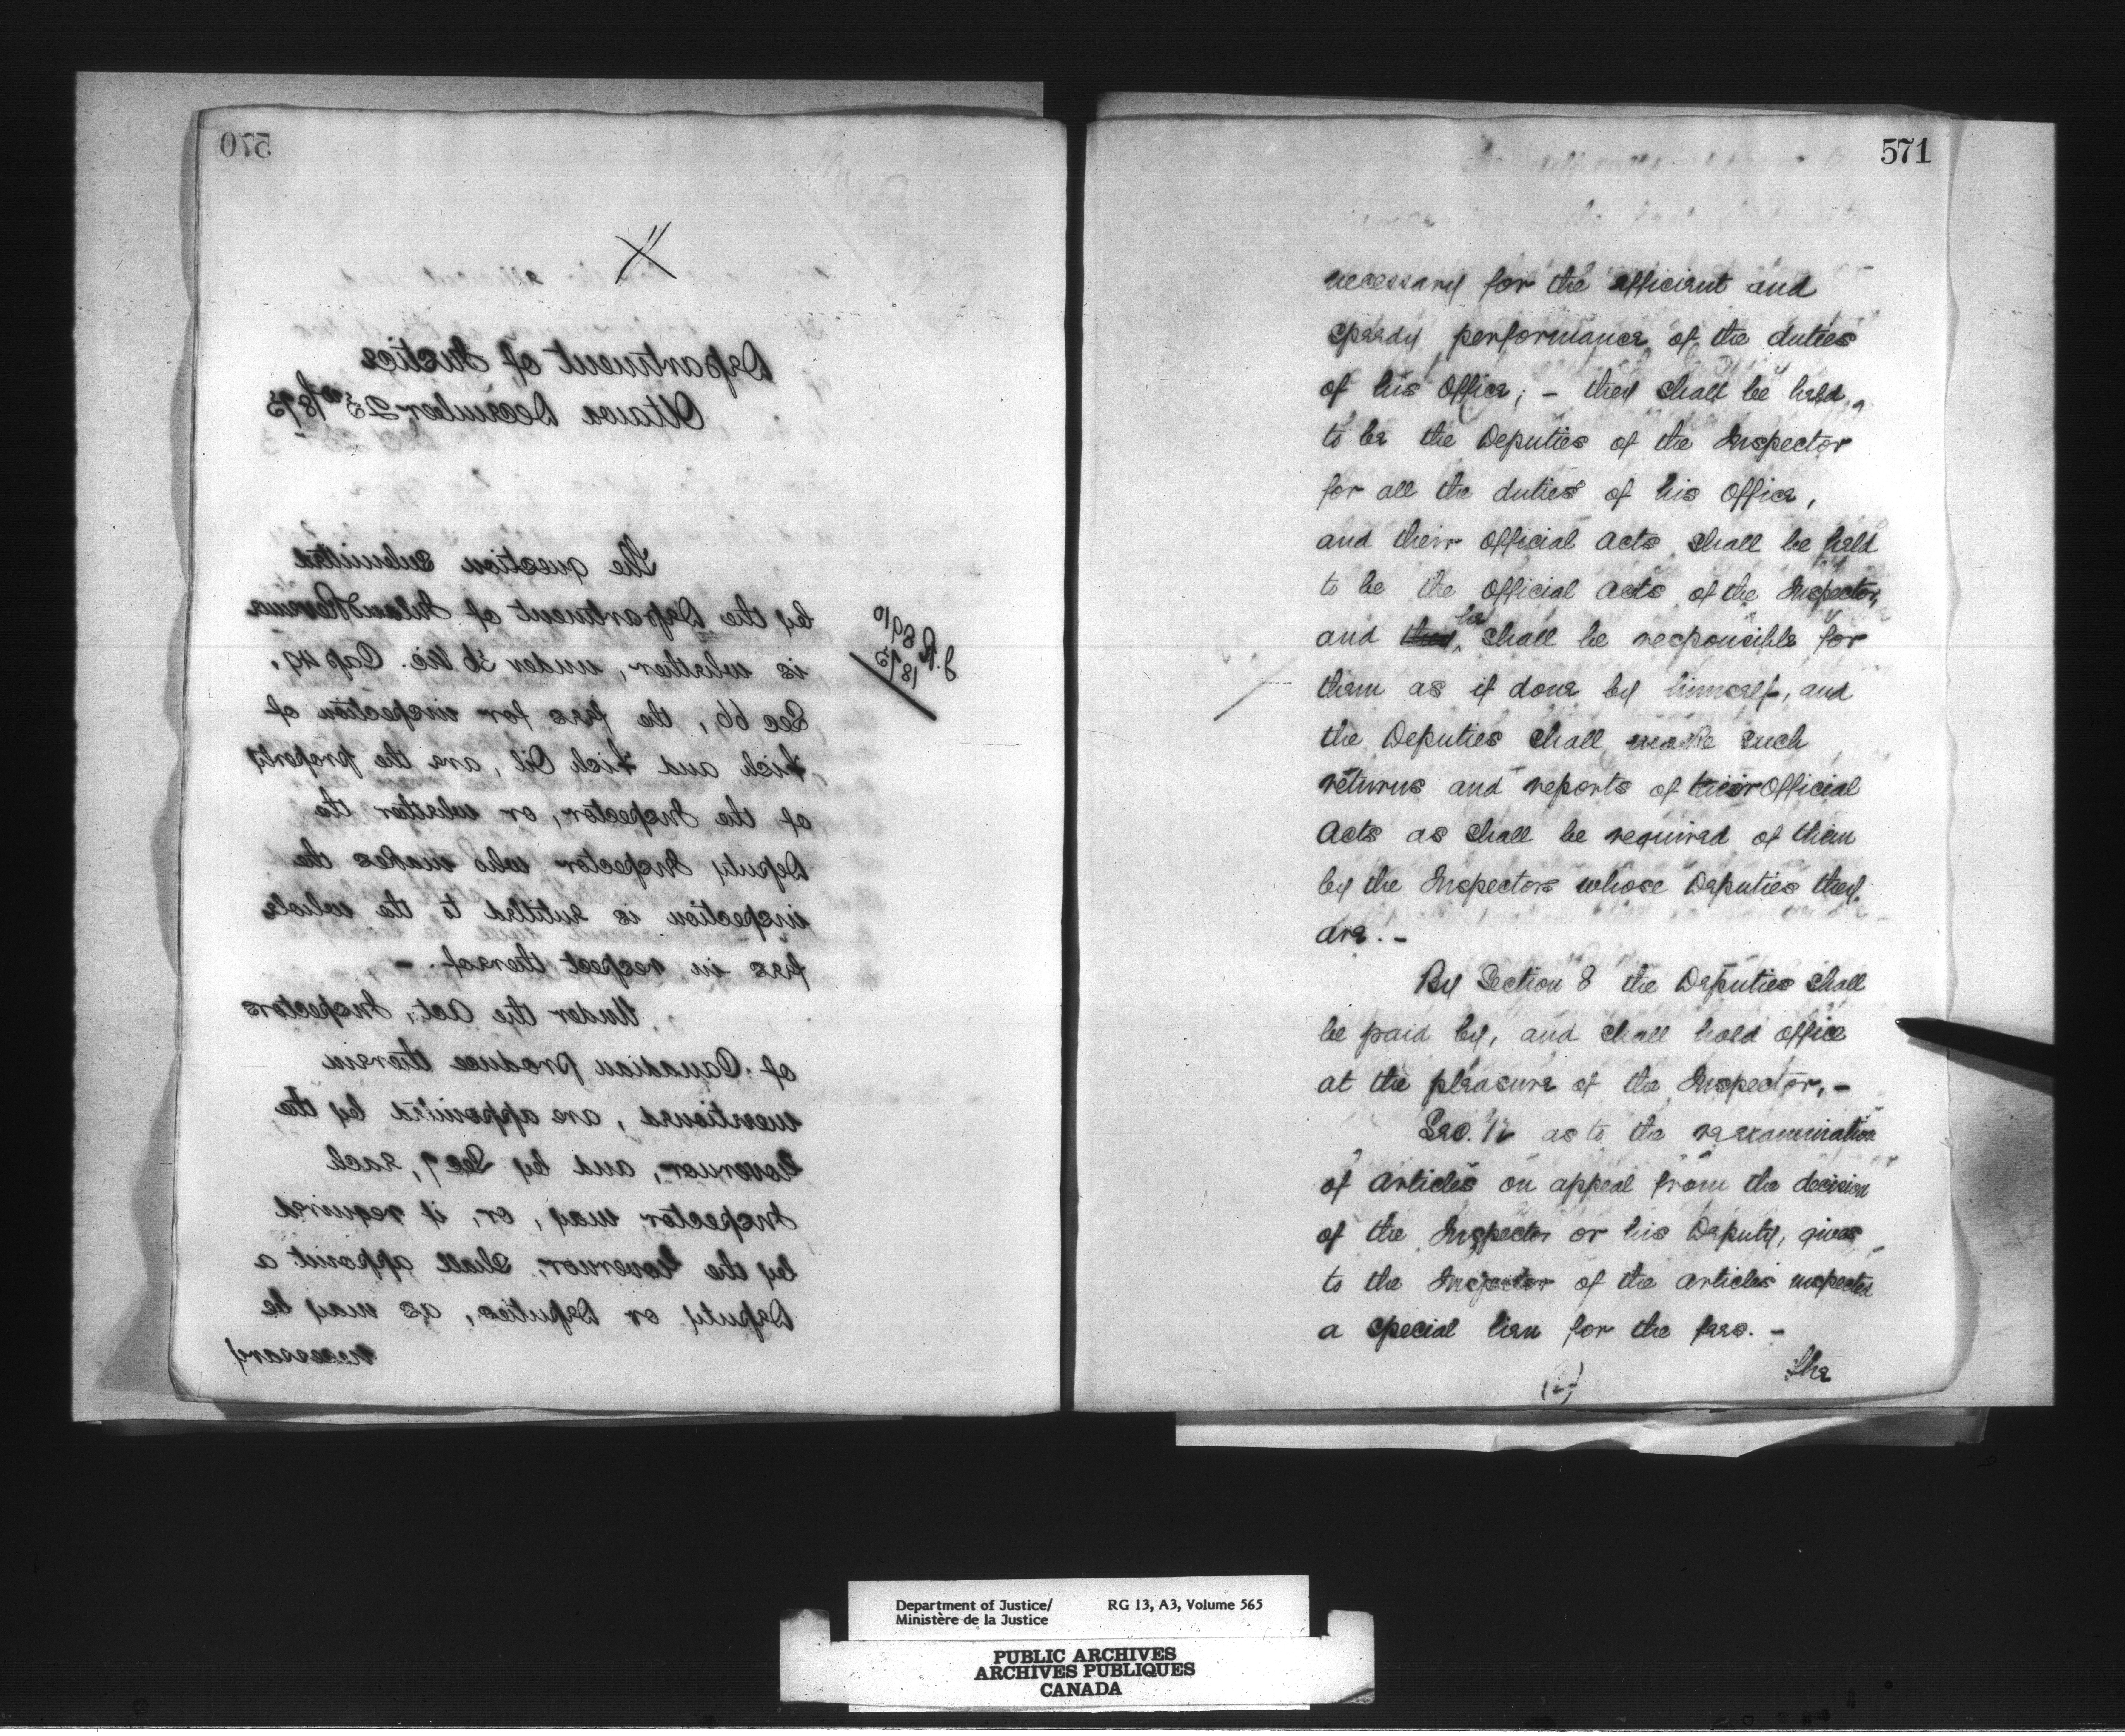 570
Department of Justice
Ottawa December 23rd 1873
The question submitted
by the Department of Inland Revenue
is whether, under 36 Vic. Cap 49,
Sec 66, the fees for inspection of
Fish and Fish Oil, are the property
of the Inspector, or whether the
Deputy Inspector who makes the
inspection is entitled to the whole
fees in respect thereof. -
Under the Act, Inspectors
of Canadian produce therein
mentioned, are appointed by the
Governor, and by Sec 7, each
Inspector may, or, if required
by the Governor, shall appoint a
Deputy or Deputies, as may be
necessary
1873
571
necessary for the efficient and
speedy performance of the duties
of his Office; - they shall be held,
to be the Deputies of the Inspector
for all the duties of his Office,
and their Official Acts shall be held
to be the Official Acts of the Inspector,
and they he shall be responsible for
them as if done by himself, and
the Deputies shall make such
returns and reports of their Official
Acts as shall be required of them
by the Inspectors whose Deputies they
are. -
By Section 8 the Deputies shall
be paid by, and shall hold office
at the pleasure of the Inspector, -
Sec. 12 as to the reexamination
of Articles on appeal from the decision
of the Inspector or his Deputy, gives
to the Inspector of the articles inspected
a special lien for the fees. -
The
(2)
Department of Justice/ RG 13, A3, Volume 565
Ministère de la Justice
PUBLIC ARCHIVES
ARCHIVES PUBLIQUES
CANADA